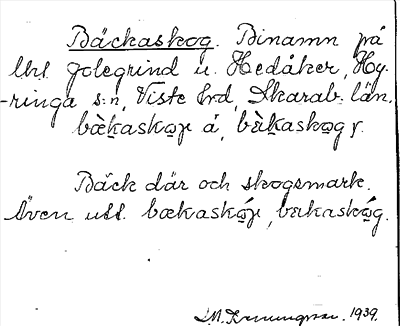 Bäckaskog. Binamn på
lht Jolegrind u. Hedåker, Hy-
-ringa s:n, Viste hd, Skarab. län.
bæ̀kaskoγ å, bæ̀kaskog γ.
Bäck där och skogsmark.
Även utt. bækaskóγ, bækaskóg.
1939.